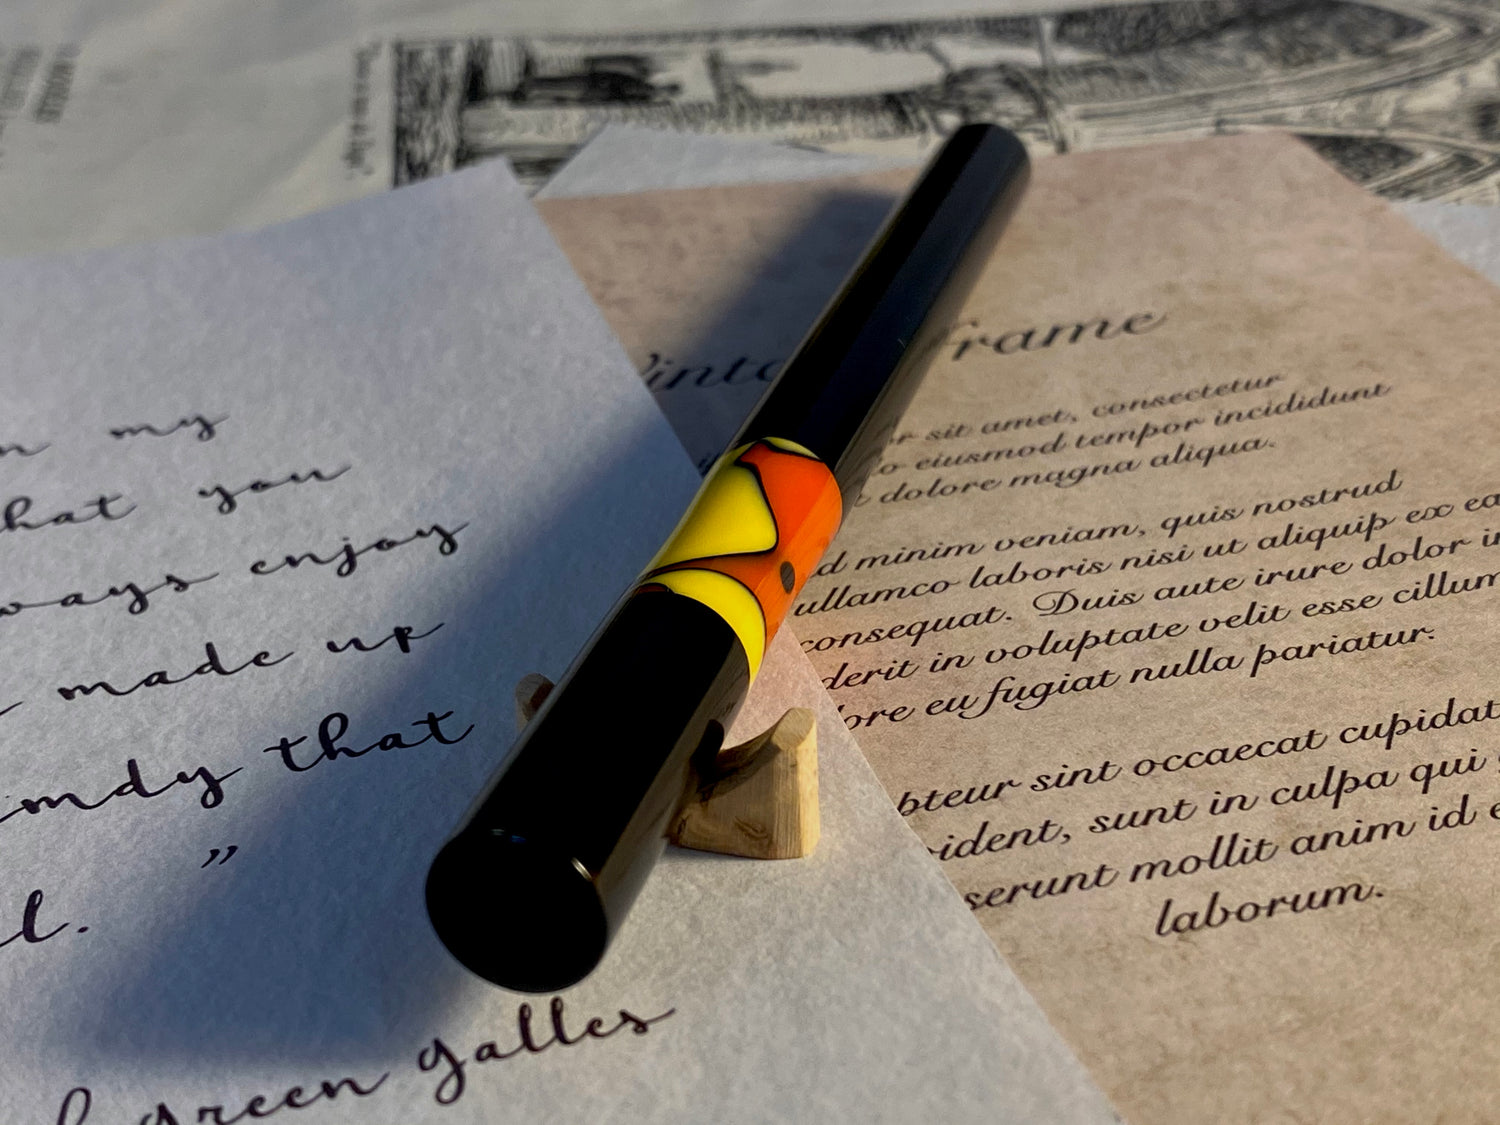 my
hat you
ways enjoy
made up
that
”
l.
green galles
frame
r sit amet, consectetur
o eiusmod tempor incididunt
dolore magna aliqua.
d minim veniam, quis nostrud
ullamco laboris nisi ut aliquip ex ea
consequat. Duis aute irure dolor in
derit in voluptate velit esse cillum
lore eu fugiat nulla pariatur.
pteur sint occaecat cupidat
ident, sunt in culpa qui
serunt mollit anim id e
laborum.